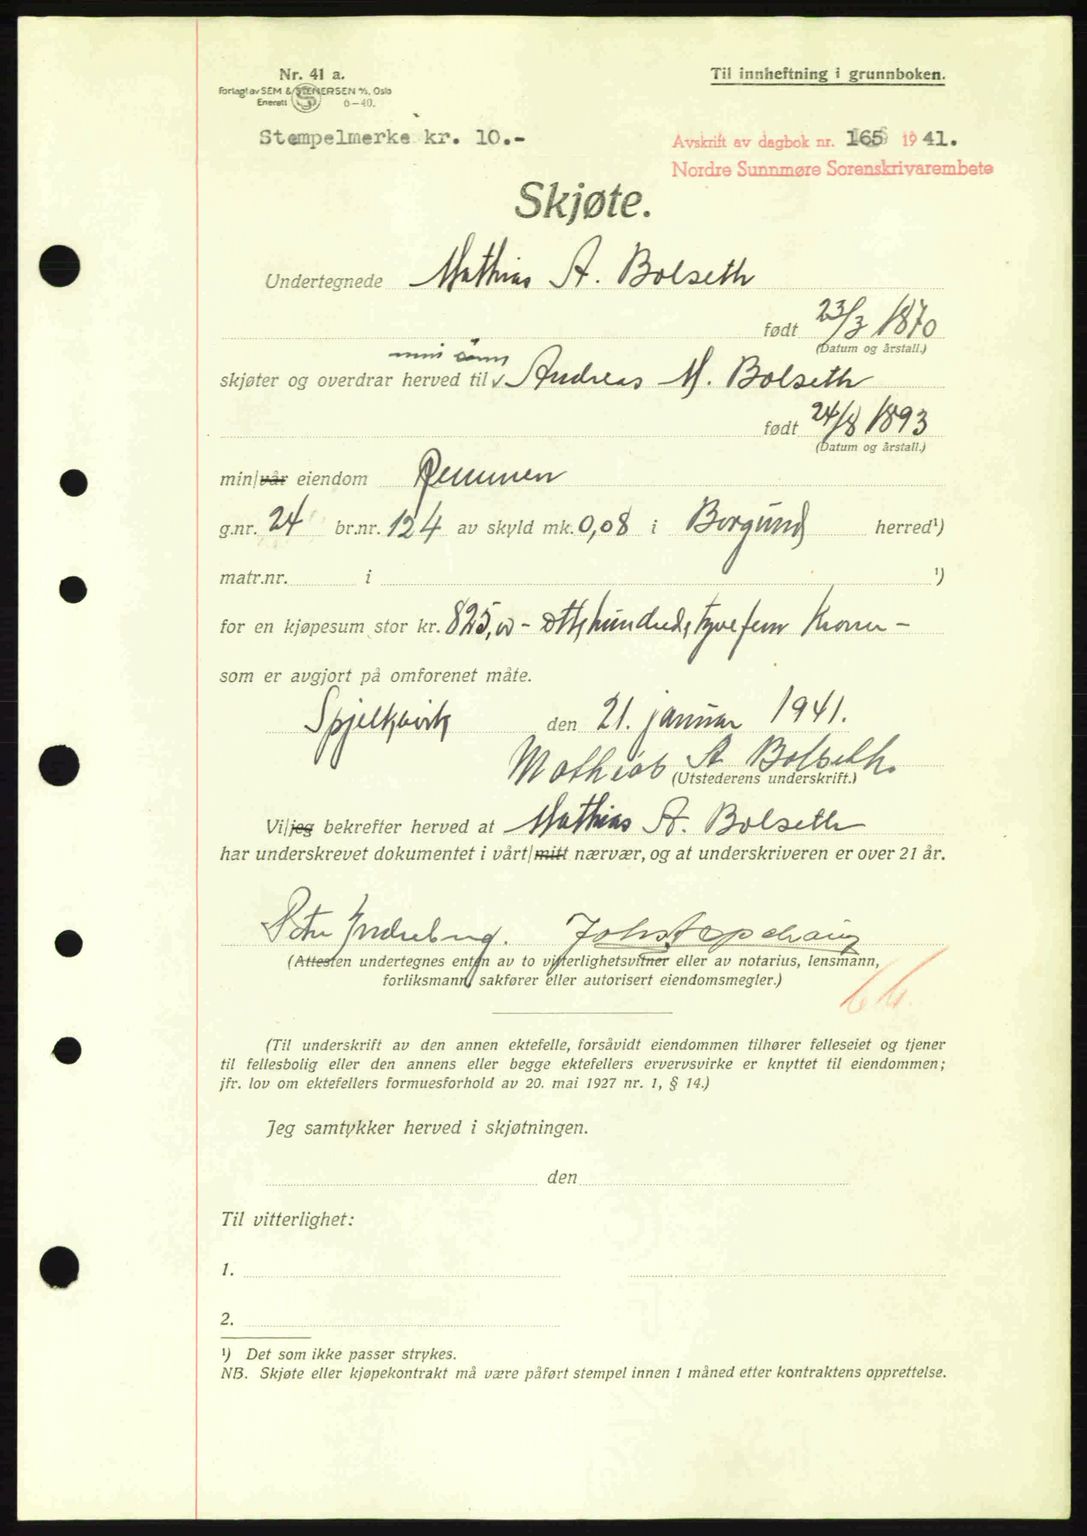 Nr. 41 a.
Forlagt av SEM & STENERSEN A/S, Oslo
Enerett 6-40.
Til innheftning i grunnboken.
Stempelmerke kr. 10.-
Avskrift av dagbok nr. 165 1941.
Nordre Sunnmøre Sorenskrivarembete
Skjøte.
Undertegnede Mathias A. Bolseth
født 23/3 1870
(Datum og årstall.)
min sønn
skjøter og overdrar herved til v Andreas M. Bolseth
født 24/8 1893
(Datum og årstall.)
min/vår eiendom Remmen
g.nr. 24 br.nr. 124 av skyld mk. 0,08 i Borgund herred¹)
matr.nr. i ¹)
for en kjøpesum stor kr. 825,00 - åttehundredetyvefem Kroner -
som er avgjort på omforenet måte.
Spjelkavik den 21. januar 1941.
Mathias A Bolseth.
(Utstederens underskrift.)
Vi/jeg bekrefter herved at Mathias A. Bolseth
har underskrevet dokumentet i vårt/mitt nærvær, og at underskriveren er over 21 år.
(Attesten undertegnes enten av to vitterlighetsvitner eller av notarius, lensmann,
forliksmann, sakfører eller autorisert eiendomsmegler.)
(Til underskrift av den annen ektefelle, forsåvidt eiendommen tilhører felleseiet og tjener
til fellesbolig eller den annens eller begge ektefellers ervervsvirke er knyttet til eiendommen;
jfr. lov om ektefellers formuesforhold av 20. mai 1927 nr. 1, § 14.)
Jeg samtykker herved i skjøtningen.
den
Til vitterlighet:
1.
2.
¹) Det som ikke passer strykes.
NB. Skjøte eller kjøpekontrakt må være påført stempel innen 1 måned etter kontraktens opprettelse.